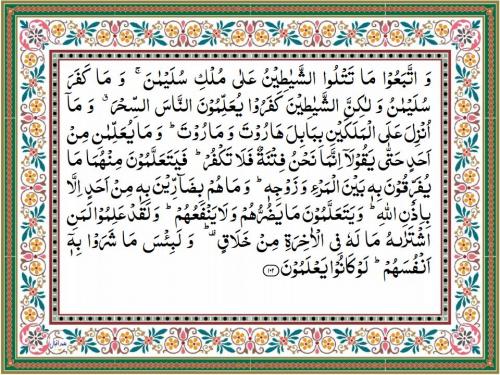 وَ اتَّبَعُوۡا مَا تَتۡلُوا الشَّیٰطِیۡنُ عَلٰی مُلۡکِ سُلَیۡمٰنَ ۚ وَ مَا کَفَرَ
سُلَیۡمٰنُ وَ لٰکِنَّ الشَّیٰطِیۡنَ کَفَرُوۡا یُعَلِّمُوۡنَ النَّاسَ السِّحۡرَ ٭ وَ مَاۤ
اُنۡزِلَ عَلَی الۡمَلَکَیۡنِ بِبَابِلَ ہَارُوۡتَ وَ مَارُوۡتَ ؕ وَ مَا یُعَلِّمٰنِ مِنۡ
اَحَدٍ حَتّٰی یَقُوۡلَاۤ اِنَّمَا نَحۡنُ فِتۡنَۃٌ فَلَا تَکۡفُرۡ ؕ فَیَتَعَلَّمُوۡنَ مِنۡہُمَا مَا
یُفَرِّقُوۡنَ بِہٖ بَیۡنَ الۡمَرۡءِ وَ زَوۡجِہٖ ؕ وَ مَا ہُمۡ بِضَآرِّیۡنَ بِہٖ مِنۡ اَحَدٍ اِلَّا
بِاِذۡنِ اللّٰہِ ؕ وَ یَتَعَلَّمُوۡنَ مَا یَضُرُّہُمۡ وَ لَا یَنۡفَعُہُمۡ ؕ وَ لَقَدۡ عَلِمُوۡا لَمَنِ
اشۡتَرٰىہُ مَا لَہٗ فِی الۡاٰخِرَۃِ مِنۡ خَلَاقٍ ۟ؕ وَ لَبِئۡسَ مَا شَرَوۡا بِہٖۤ
اَنۡفُسَہُمۡ ؕ لَوۡ کَانُوۡا یَعۡلَمُوۡنَ ﴿۱۰۲﴾